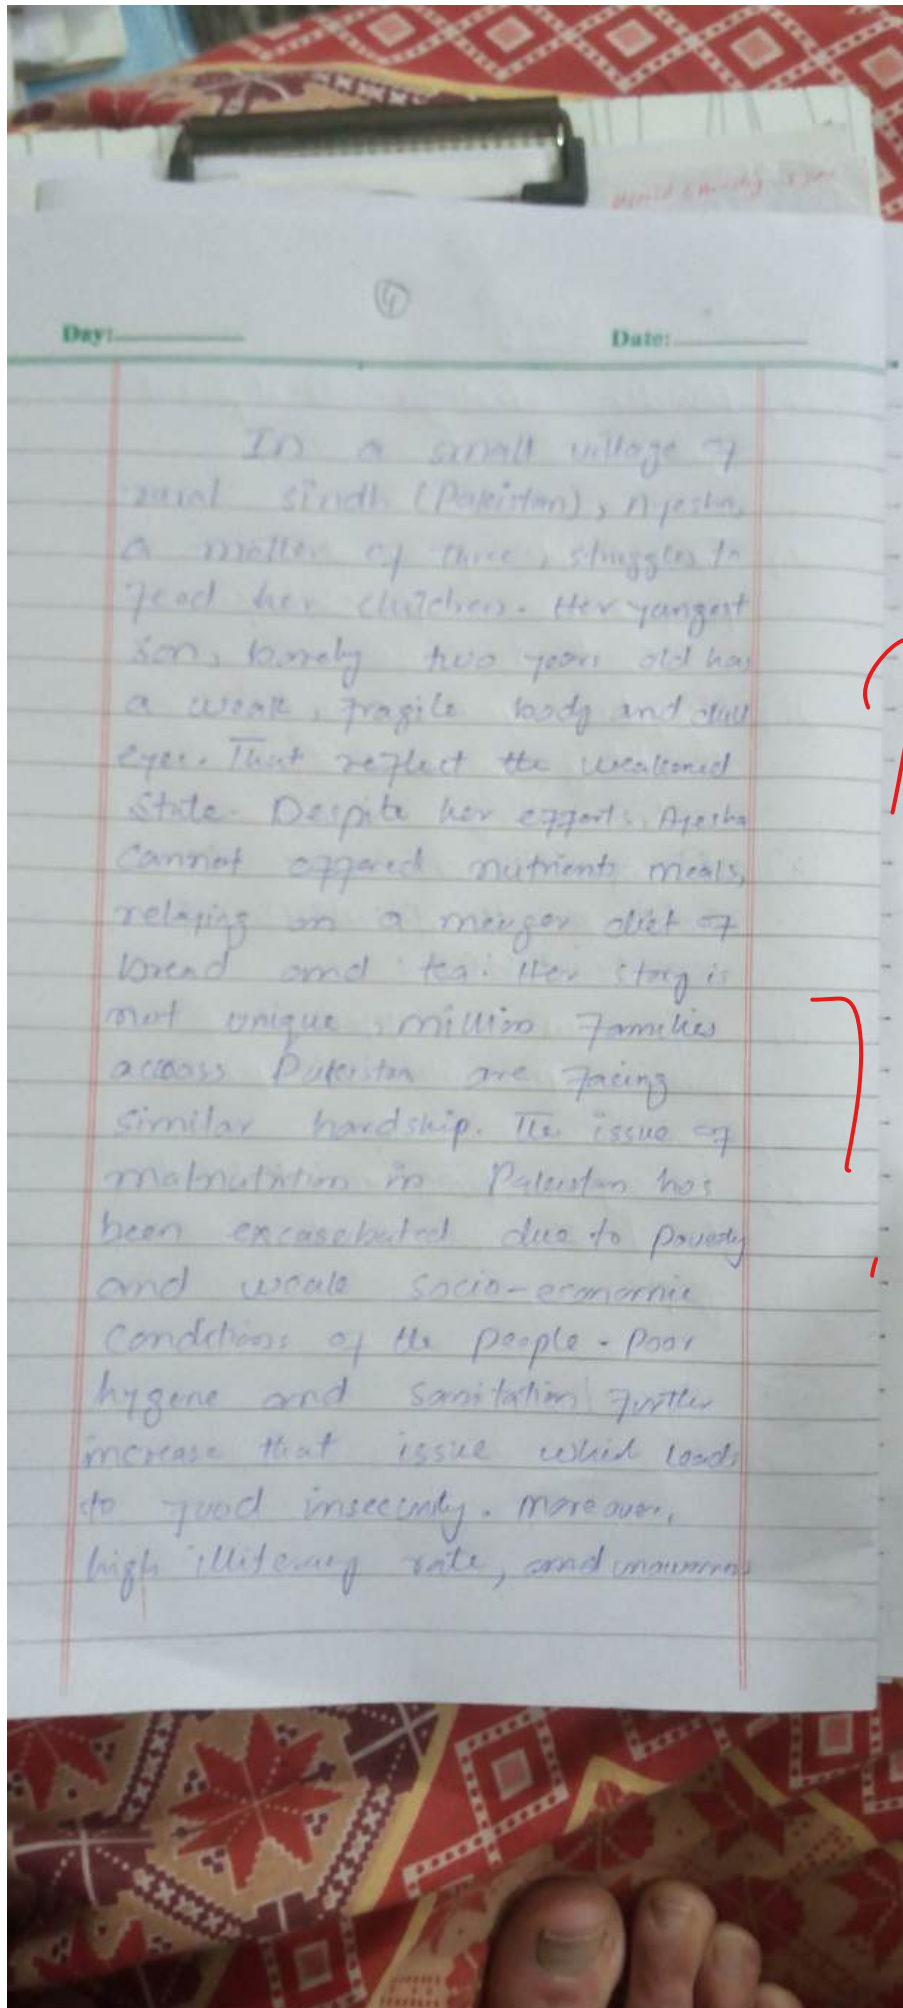 4
Day: Date:
In a small village of
rural Sindh (Pakistan), Ayesha,
a mother of three, struggles to
feed her children. Her yangest
son, barely two years old has
a weak, fragile body and dull
eyes. That reflect the weakened
State. Despite her efforts, Ayesha
cannot offored nutrients meals,
relaying on a meager diet of
bread and tea. Her story is
not unique, million families
across Pakistan are facing
similar hardship. The issue of
malnutrition in Pakistan has
been excasebated due to poverty
and weak socio-economic
conditions of the people. Poor
hygene and sanitation further
increase that issue which leads
to food insecurity. Moreover,
high illiteracy rate, and unawarness